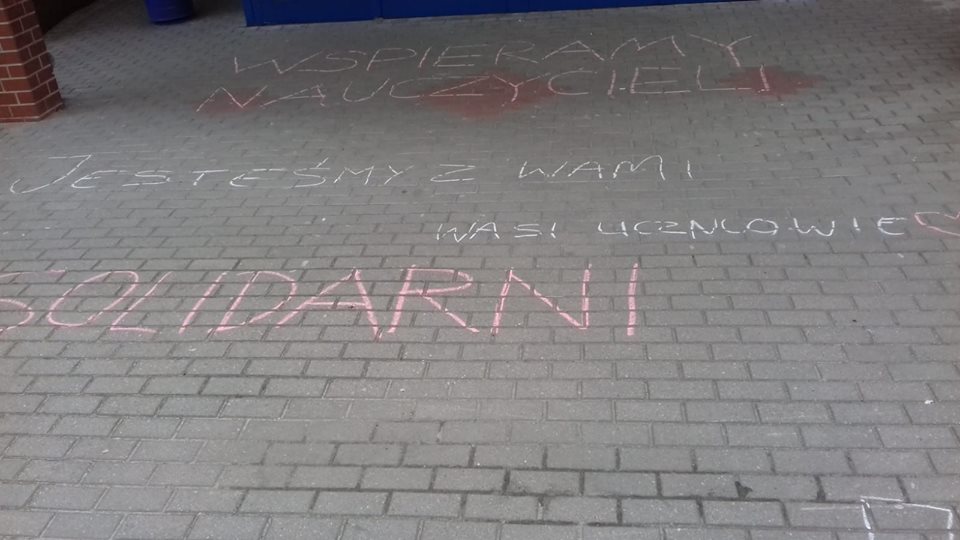 WSPIERAMY
NAUCZYCIELI
JESTEŚMY Z WAMI
WASI UCZNIOWIE
SOLIDARNI